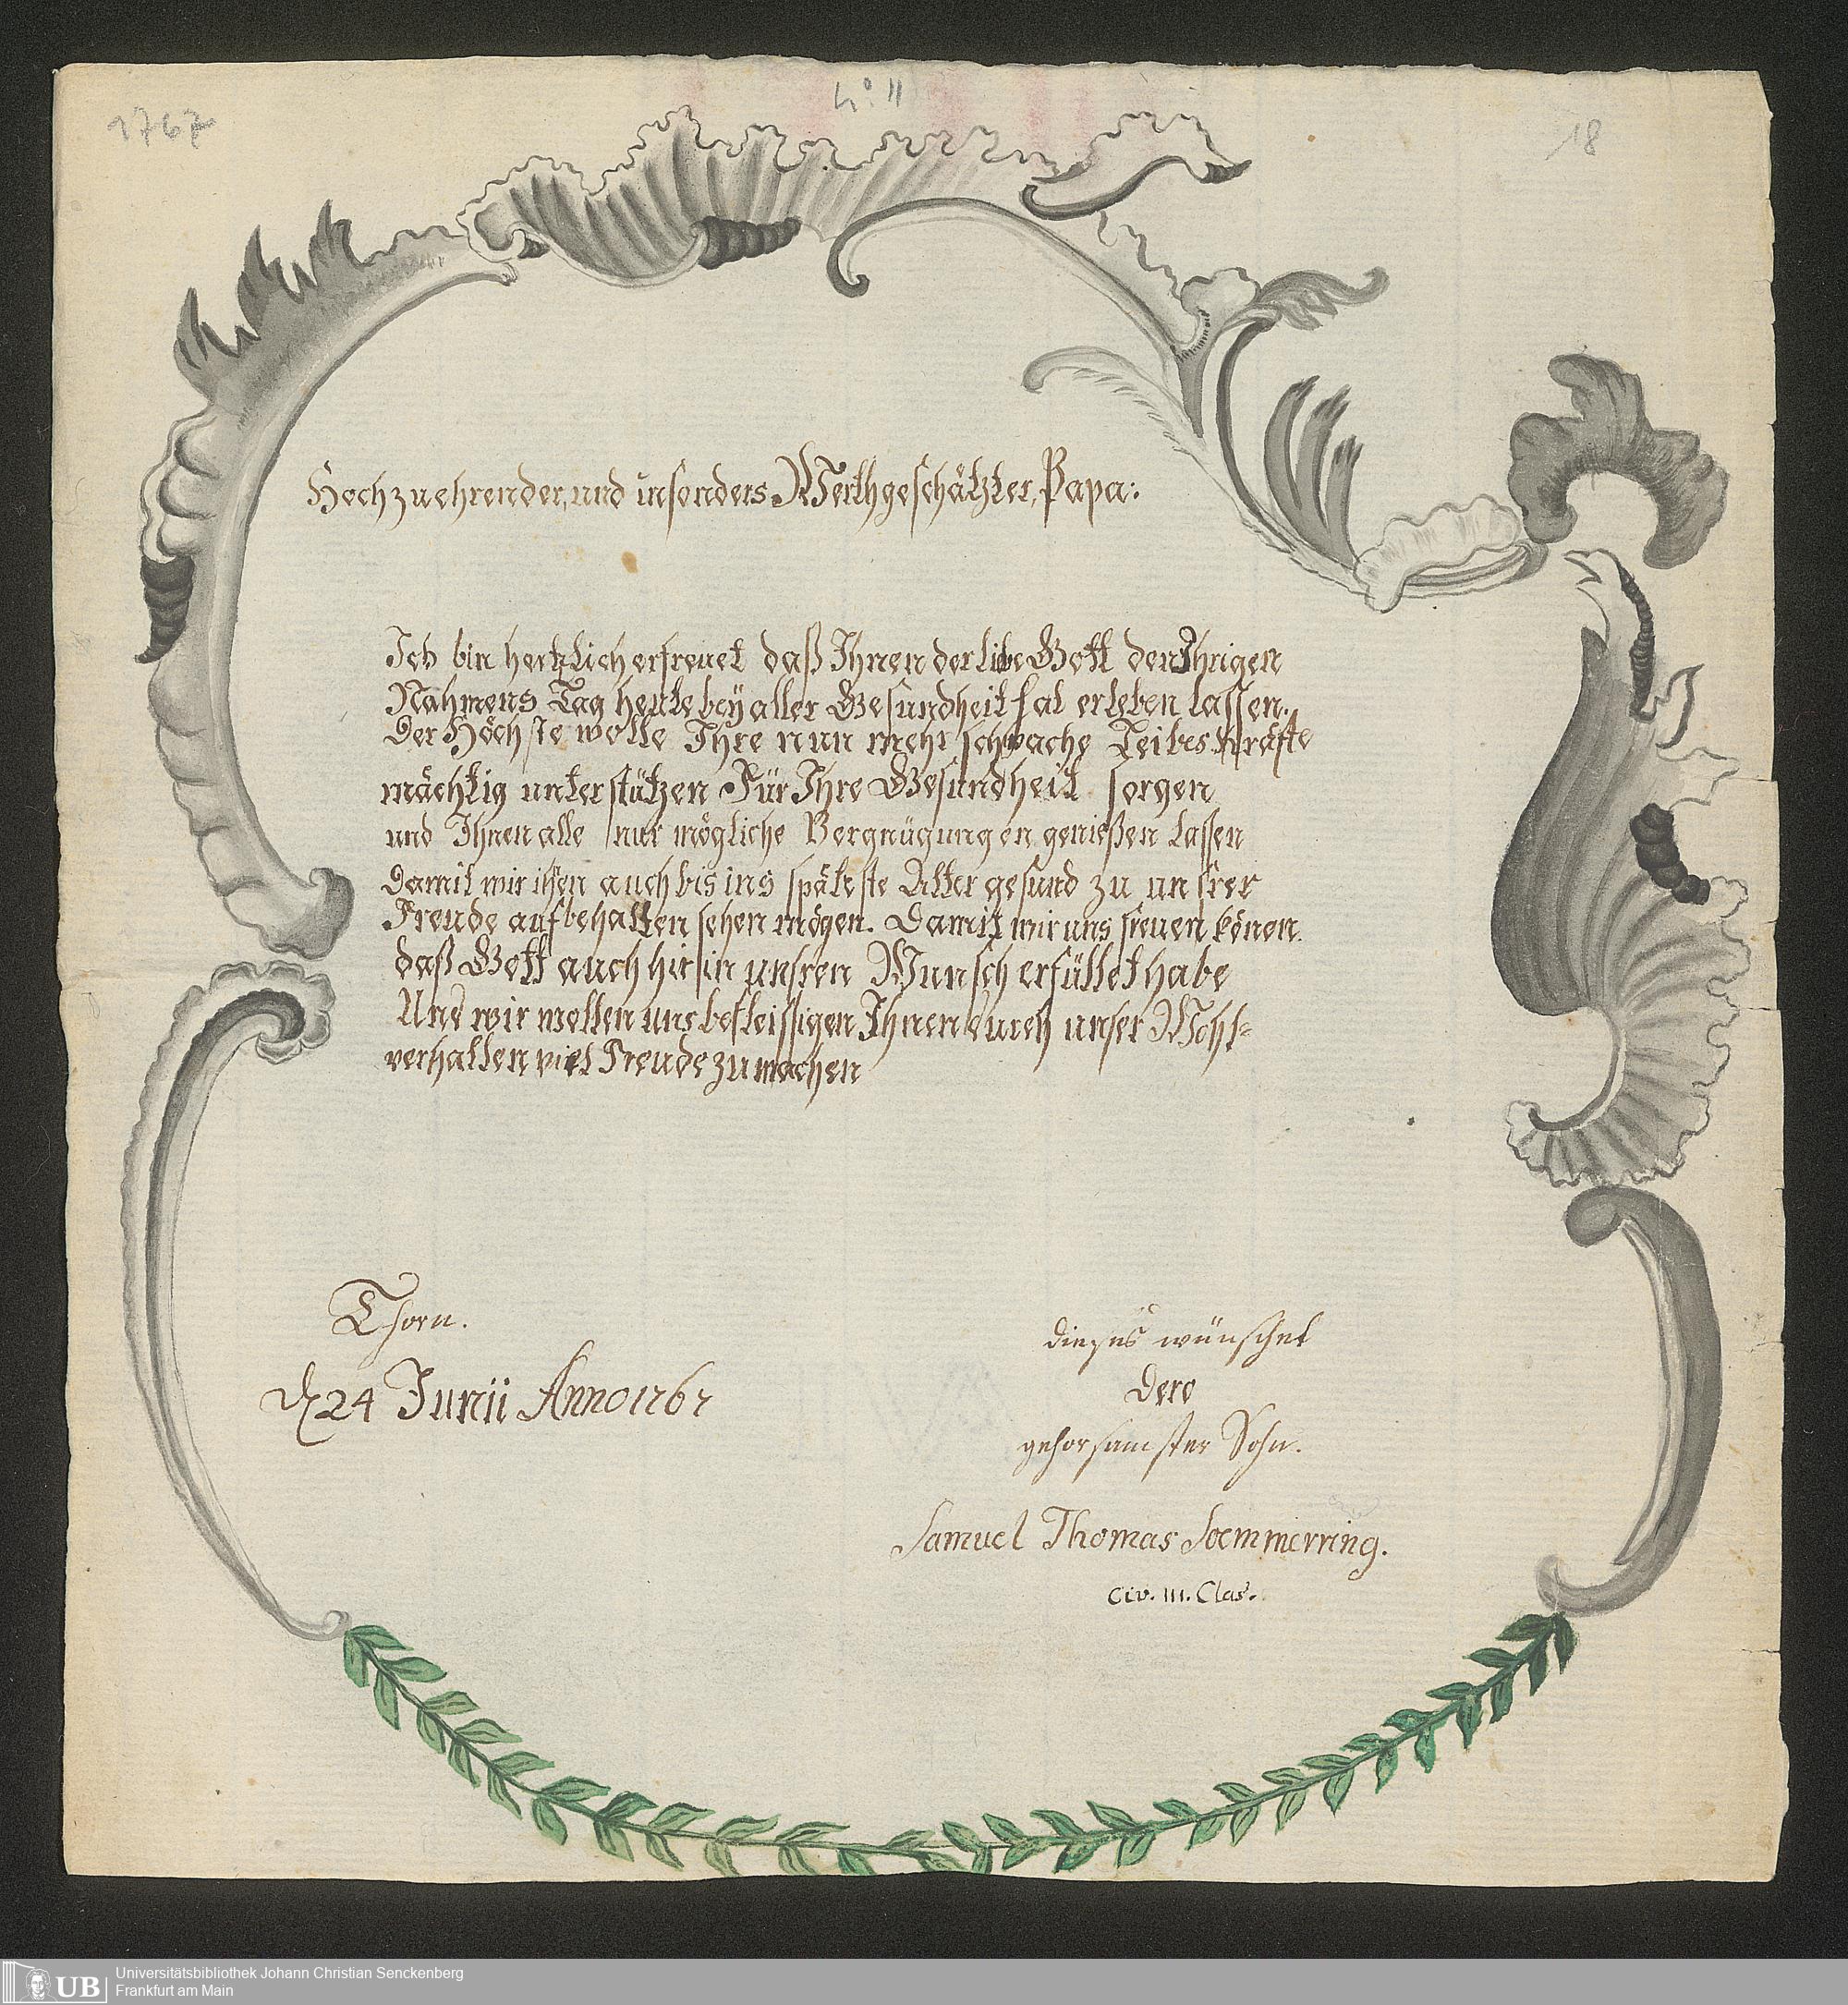 1767
No. 11
18
Hochzuehrender, und insonders Werthgeschätzter, Papa:
Ich bin hertzlich erfreuet daß Ihnen der libe Gott den Ihrigen
Nahmens Tag heute bey aller Gesundheit hat erleben lassen.
Der Höchste wolle Ihre nun mehr schwache Leibes Kräfte
mächtig unterstützen Für Ihre Gesundheit sorgen
und Ihnen alle nur mögliche Vergnügungen genießen lassen
Damit wir ihnen auch bis ins späteste Alter gesund zu unsrer
Freude aufbehalten sehen mögen. Damit wir uns freuen könen.
daß Gott auch hirin unsren Wunsch erfüllet habe
Und wir wollen uns befleissigen Ihnen durch unser Wohl=
verhalten viel Freude zu machen
Thorn.
24 Junii Anno 1767
wünschet
Dero
gehorsamster Sohn.
Samuel Thomas Soemmerring.
Civ. III. Clas.
UB
Universitätsbibliothek Johann Christian Senckenberg
Frankfurt am Main